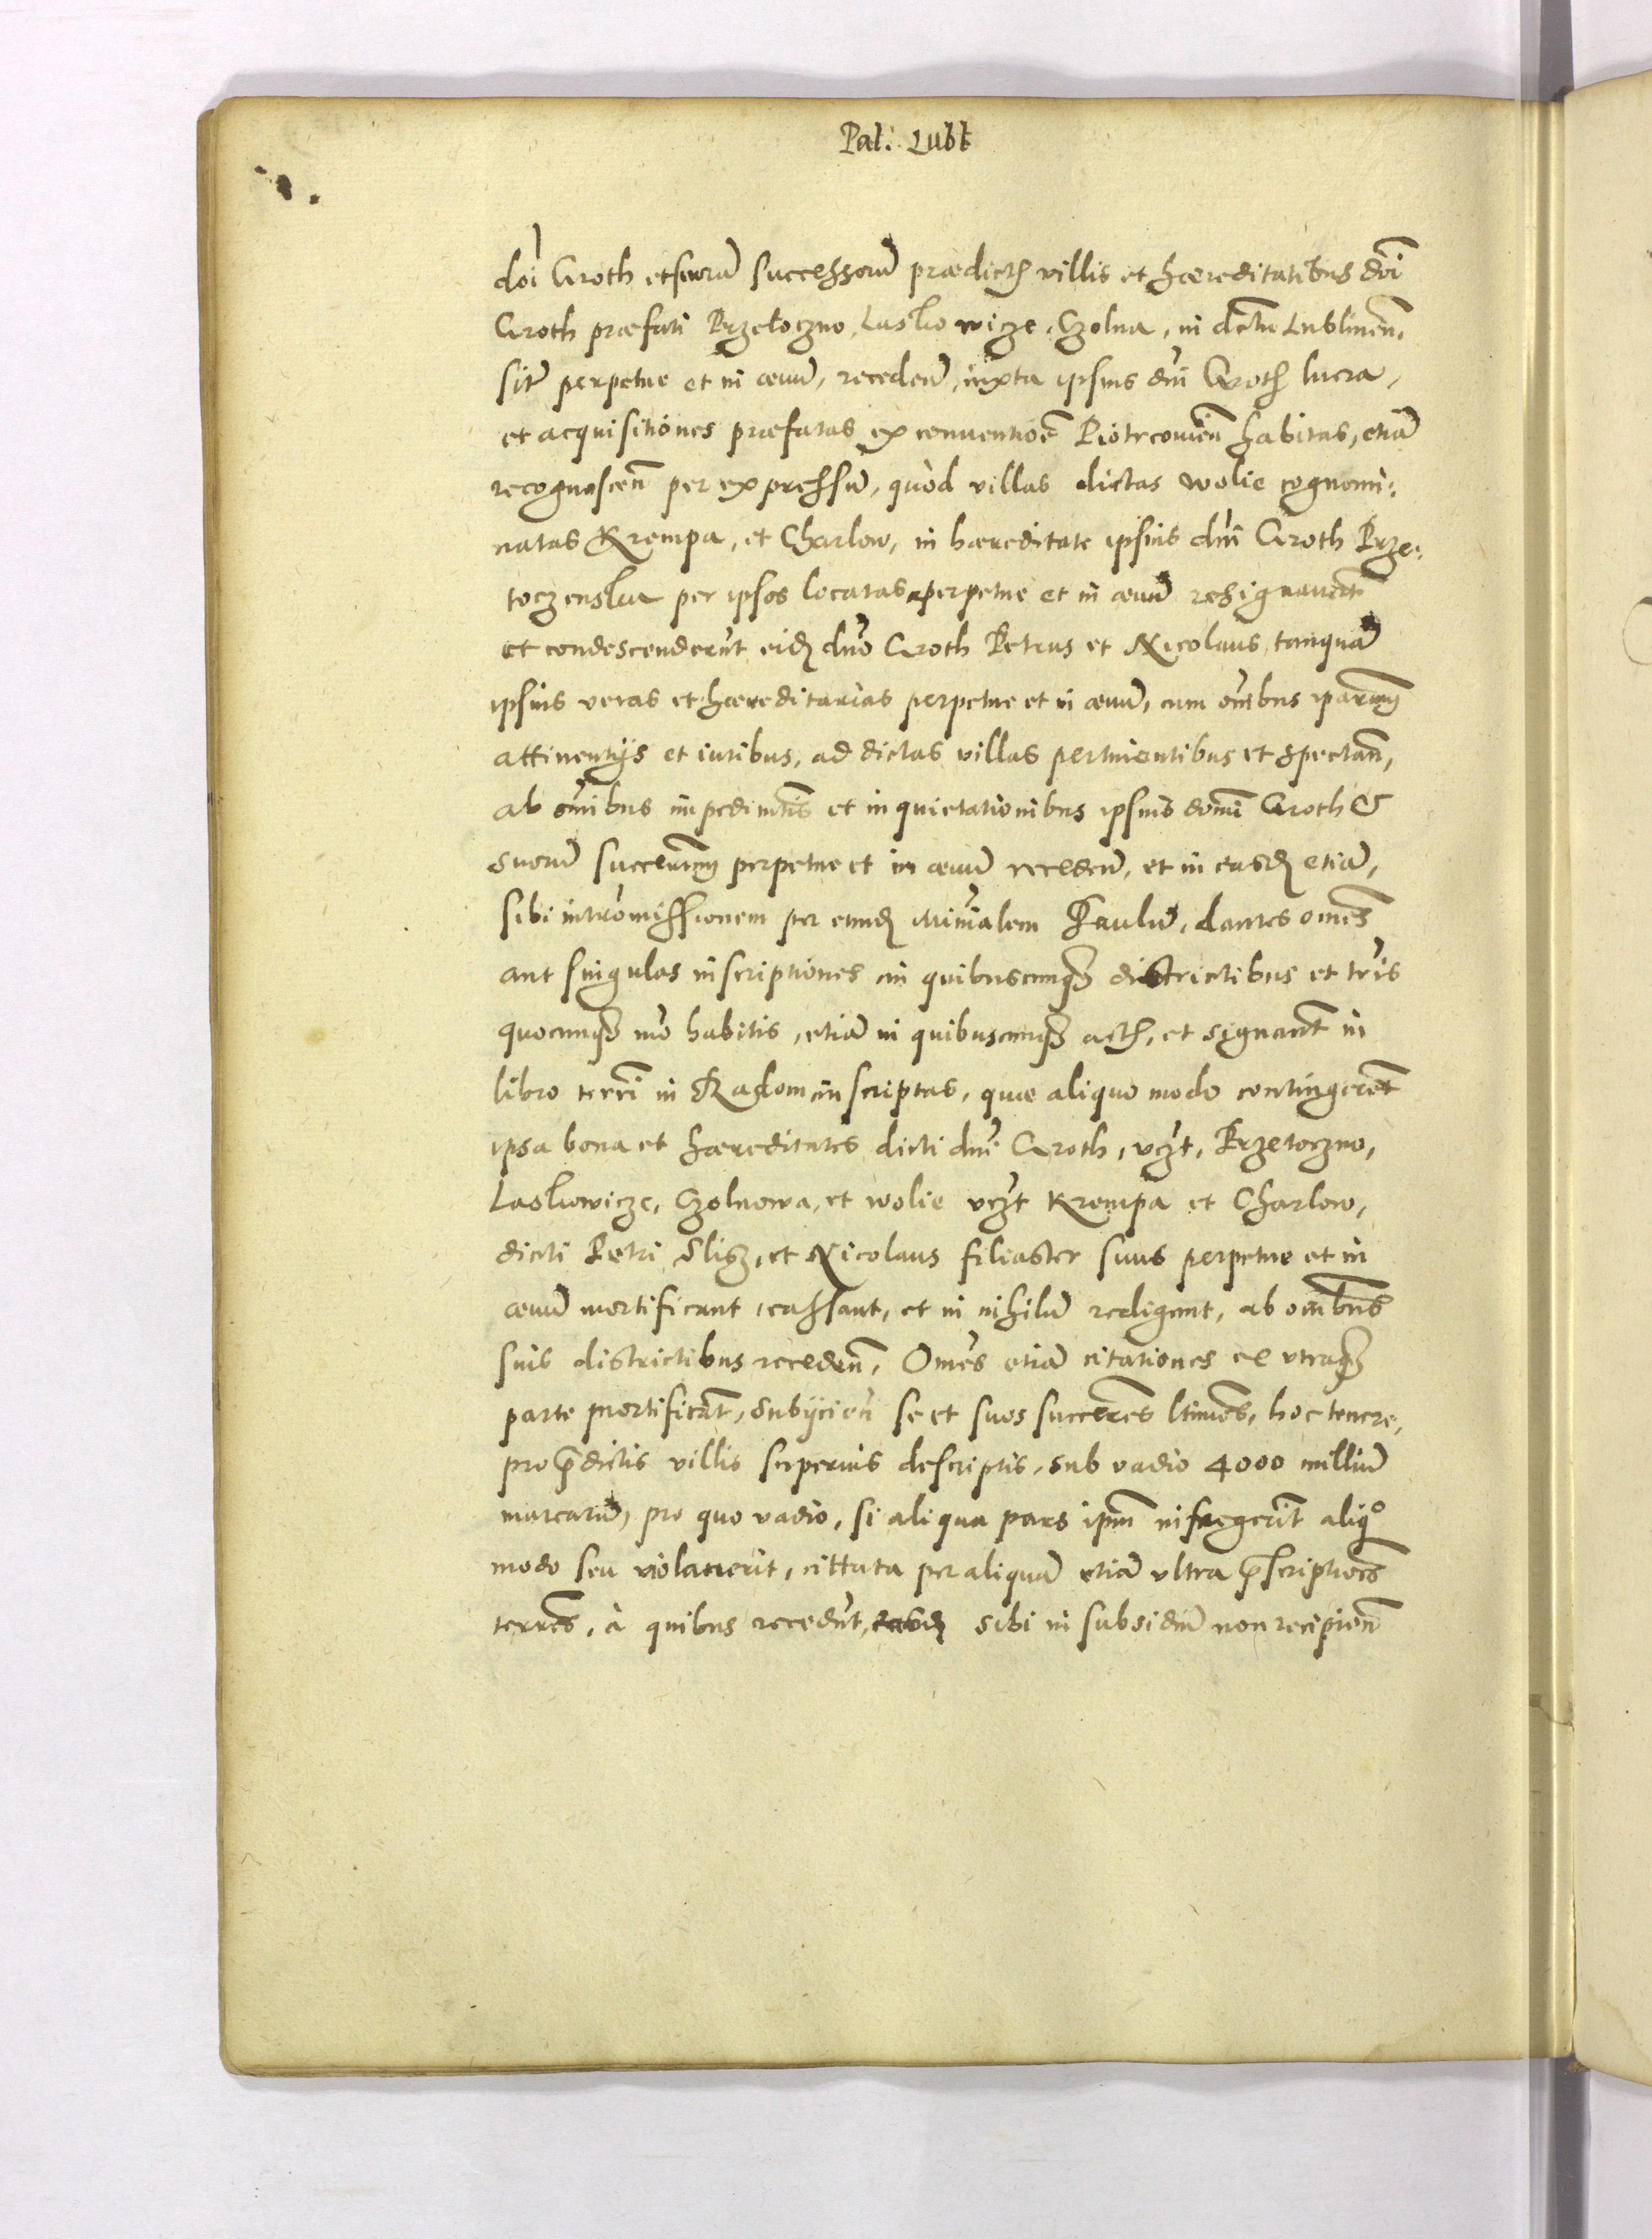 Pal: Lubl
doi Groth et suorũ successorũ prædictis villis et hæreditatibus dni
Groth præfati Przetoczno, Laskowicze, Czolna, in dctu Lublineñ.
sitis perpetue et in ævũ, recedeñ, iuxta ipsius dni Groth lucra,
et acquisitiones præfatas ex conuentioẽ Piotrcouieñ habitas, etiã
recognosceñ per expressũ, quòd villas dictas wolie cognomi:
natas Krempa, et Charlow, in hæreditate ipsius dni Groth Prze:
toczenska per ipsos locatas perpetue et in ævũ resignauerũt
et condescenderũt eidẽ dno Groth Petrus et Nicolaus, tanquã
ipsius veras et hæreditarias perpetue et in ævũ, cum omĩbus iparum
attinentijs et iuribus, ad dictas villas pertinentibus et spectañ,
ab omĩbus impedimtis et inquietationibus ipsius domi Groth &
suorũ succerum perpetue et in ævũ recedeñ, et in easdẽ etiã,
sibi intromissionem per eundẽ Mimalem Paulũ, dantes omẽs
aut singulas inscriptiones in quibuscunque districtibus et tris
quocunque mo habitis, etiã in quibuscunque actis, et signant in
libro terri in Radom inscriptas, quæ aliquo modo contingerẽt
ipsa bona et hæreditates dicti dni Groth, vczt, Przetoczno,
Laskowicze, Czolnowa, et wolie vczt Krempa et Charlow,
dicti Petri Slisz, et Nicolaus filiaster suus perpetue et in
ævũ mortificant, cassant, et in nihilũ redigunt, ab omĩbus
suis districtibus recedeñ, Omẽs etiã citationes ex vtraque
parte mortificãt, subijcieñ se et suos succeres ltimos, hoc tenere,
pro prædictis villis superius descriptis, sub vadio 4000 milliũ
marcarũ, pro quo vadio, si aliqua pars ipm infregerit aliqº
modo seu violauerit, cittata per aliquã etiã vltra præscriptioẽs
terres, à quibus recedũt, easdẽ sibi in subsidiũ non recipieñ